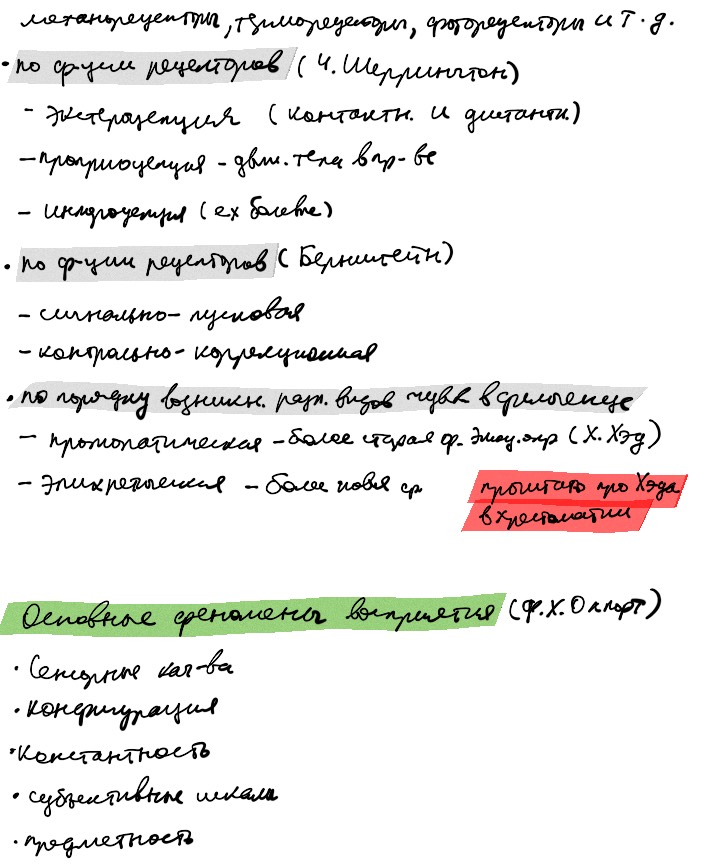 механорецепторы, терморецепторы, фоторецепторы и т.д.
• по ф-ции рецепторов (Ч. Шеррингтон)
- экстероцепция (контактн. и дистантн.)
- проприоцепция - движ. тела в пр-ве
- интероцепция (ex болевые)
• по ф-ции рецепторов (Бернштейн)
- сигнально-пусковая
- контрольно-коррекционная
• по порядку возникн. разл. видов чувств в филогенезе
- протопатическая - более старая ф. (Х. Хэд)
- эпикретическая - более новая ф
прочитать про Хэда
в хрестоматии
Основные феномены восприятия (Ф.Х. Олпорт)
• Сенсорные кач-ва
• конфигурация
• константность
• субъективные шкалы
• предметность